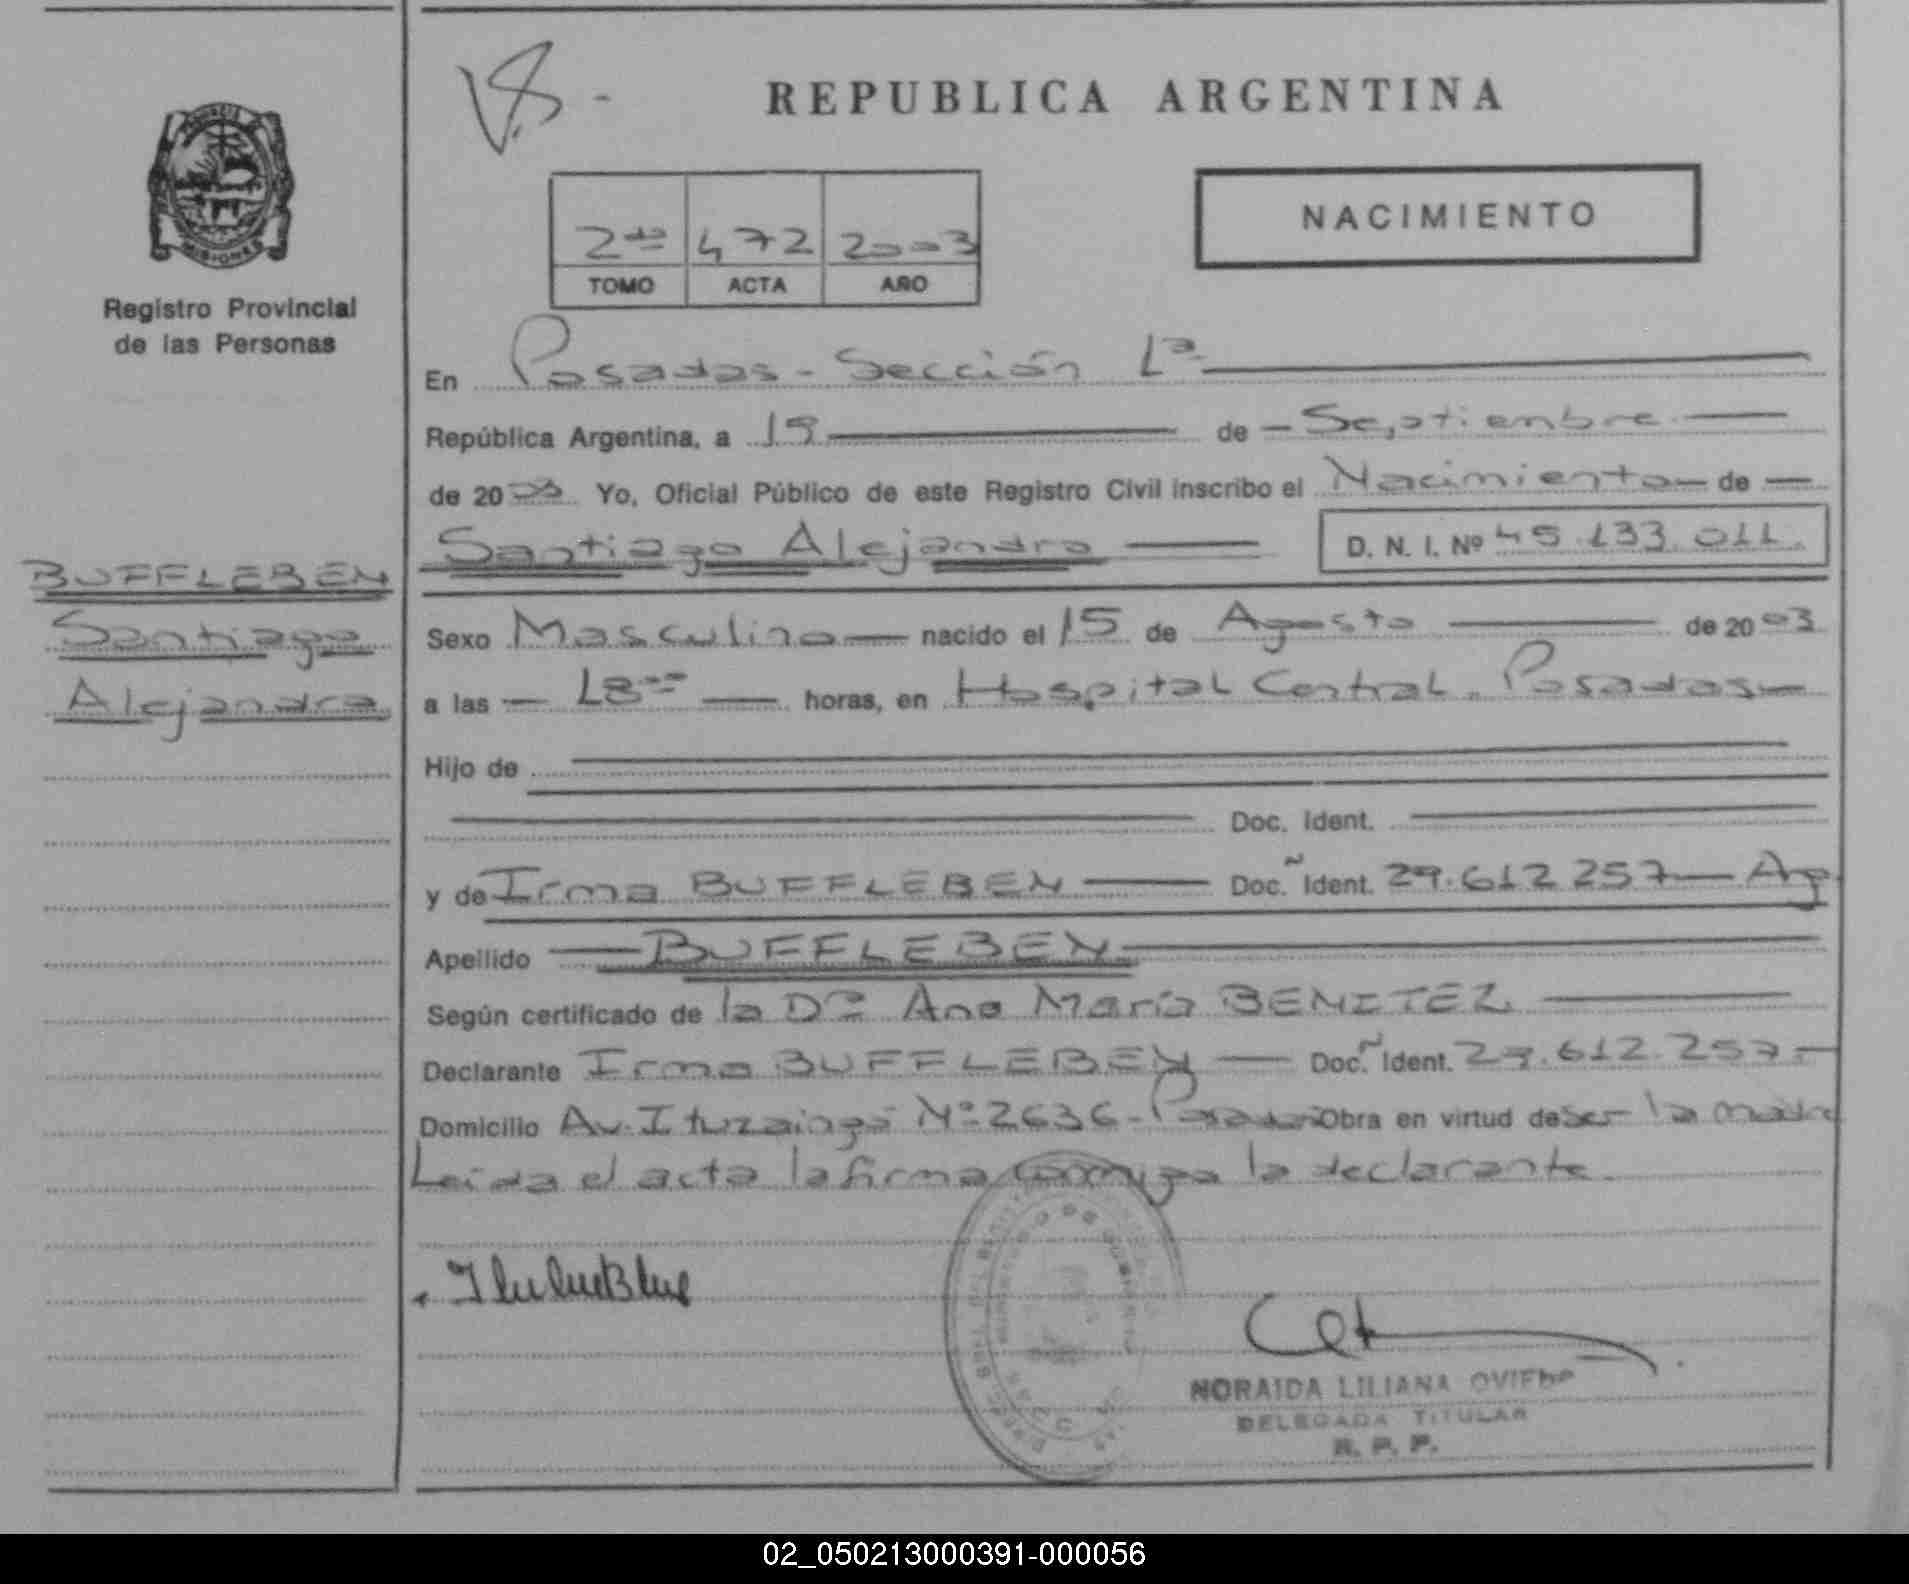 V.S. -
REPUBLICA ARGENTINA
NACIMIENTO
2do 472 2003
TOMO ACTA AÑO
PROVINCIA DE
MISIONES
Registro Provincial
de las Personas
En Posadas - Sección 1a
República Argentina, a 19 de Septiembre
de 2003 Yo, Oficial Público de este Registro Civil inscribo el Nacimiento de
Santiago Alejandro D. N. I. Nº 45.133.011.
BUFFLEBEN
Santiago
Alejandro
Sexo Masculino nacido el 15 de Agosto de 2003
a las 18 horas, en Hospital Central. Posadas
Hijo de
Doc. Ident.
y de Irma BUFFLEBEN Doc. Ident. 29.612.257 Arg
Apellido BUFFLEBEN
Según certificado de la Dra Ana María BENITEZ
Declarante Irma BUFFLEBEN Doc. Ident. 29.612.257.-
Domicilio Av. Ituzaingó Nº 2636 - Posadas Obra en virtud de ser la madre
Leida el acta la firma conmigo la declarante.
NORAIDA LILIANA OVIEDO
DELEGADA TITULAR
R. P. P.
02_050213000391-000056